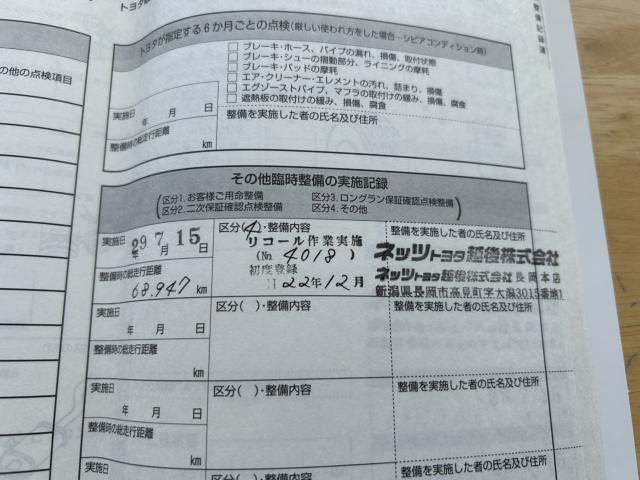 整備記録簿
の他の点検項目
トヨタが指定する6か月ごとの点検(厳しい使われ方をした場合…シビアコンディション時)
□ブレーキ・ホース、パイプの漏れ、損傷、取付状態
□ブレーキ・シューの摺動部分、ライニングの摩耗
□ブレーキ・パッドの摩耗
□エア・クリーナー・エレメントの汚れ、詰まり、損傷
□エグゾーストパイプ、マフラの取付けの緩み、損傷、腐食
□遮熱板の取付けの緩み、損傷、腐食
実施日 年 月 日
整備を実施した者の氏名及び住所
整備時の総走行距離
km
その他臨時整備の実施記録
区分1.お客様ご用命整備 区分3.ロングラン保証確認点検整備
区分2.二次保証確認点検整備 区分4.その他
実施日 29年 7月 15日
区分(4)・整備内容
整備を実施した者の氏名及び住所
リコール作業実施
(No. 4018)
初度登録
H22年12月
ネッツトヨタ越後株式会社
ネッツトヨタ越後株式会社長岡本店
新潟県長岡市高見町字大潟3015番地1
整備時の総走行距離
68.947 km
実施日 年 月 日
区分( )・整備内容
整備を実施した者の氏名及び住所
整備時の総走行距離
km
実施日 年 月 日
区分( )・整備内容
整備を実施した者の氏名及び住所
整備時の総走行距離
km
実施日
区分( )・整備内容
整備を実施した者の氏名及び住所